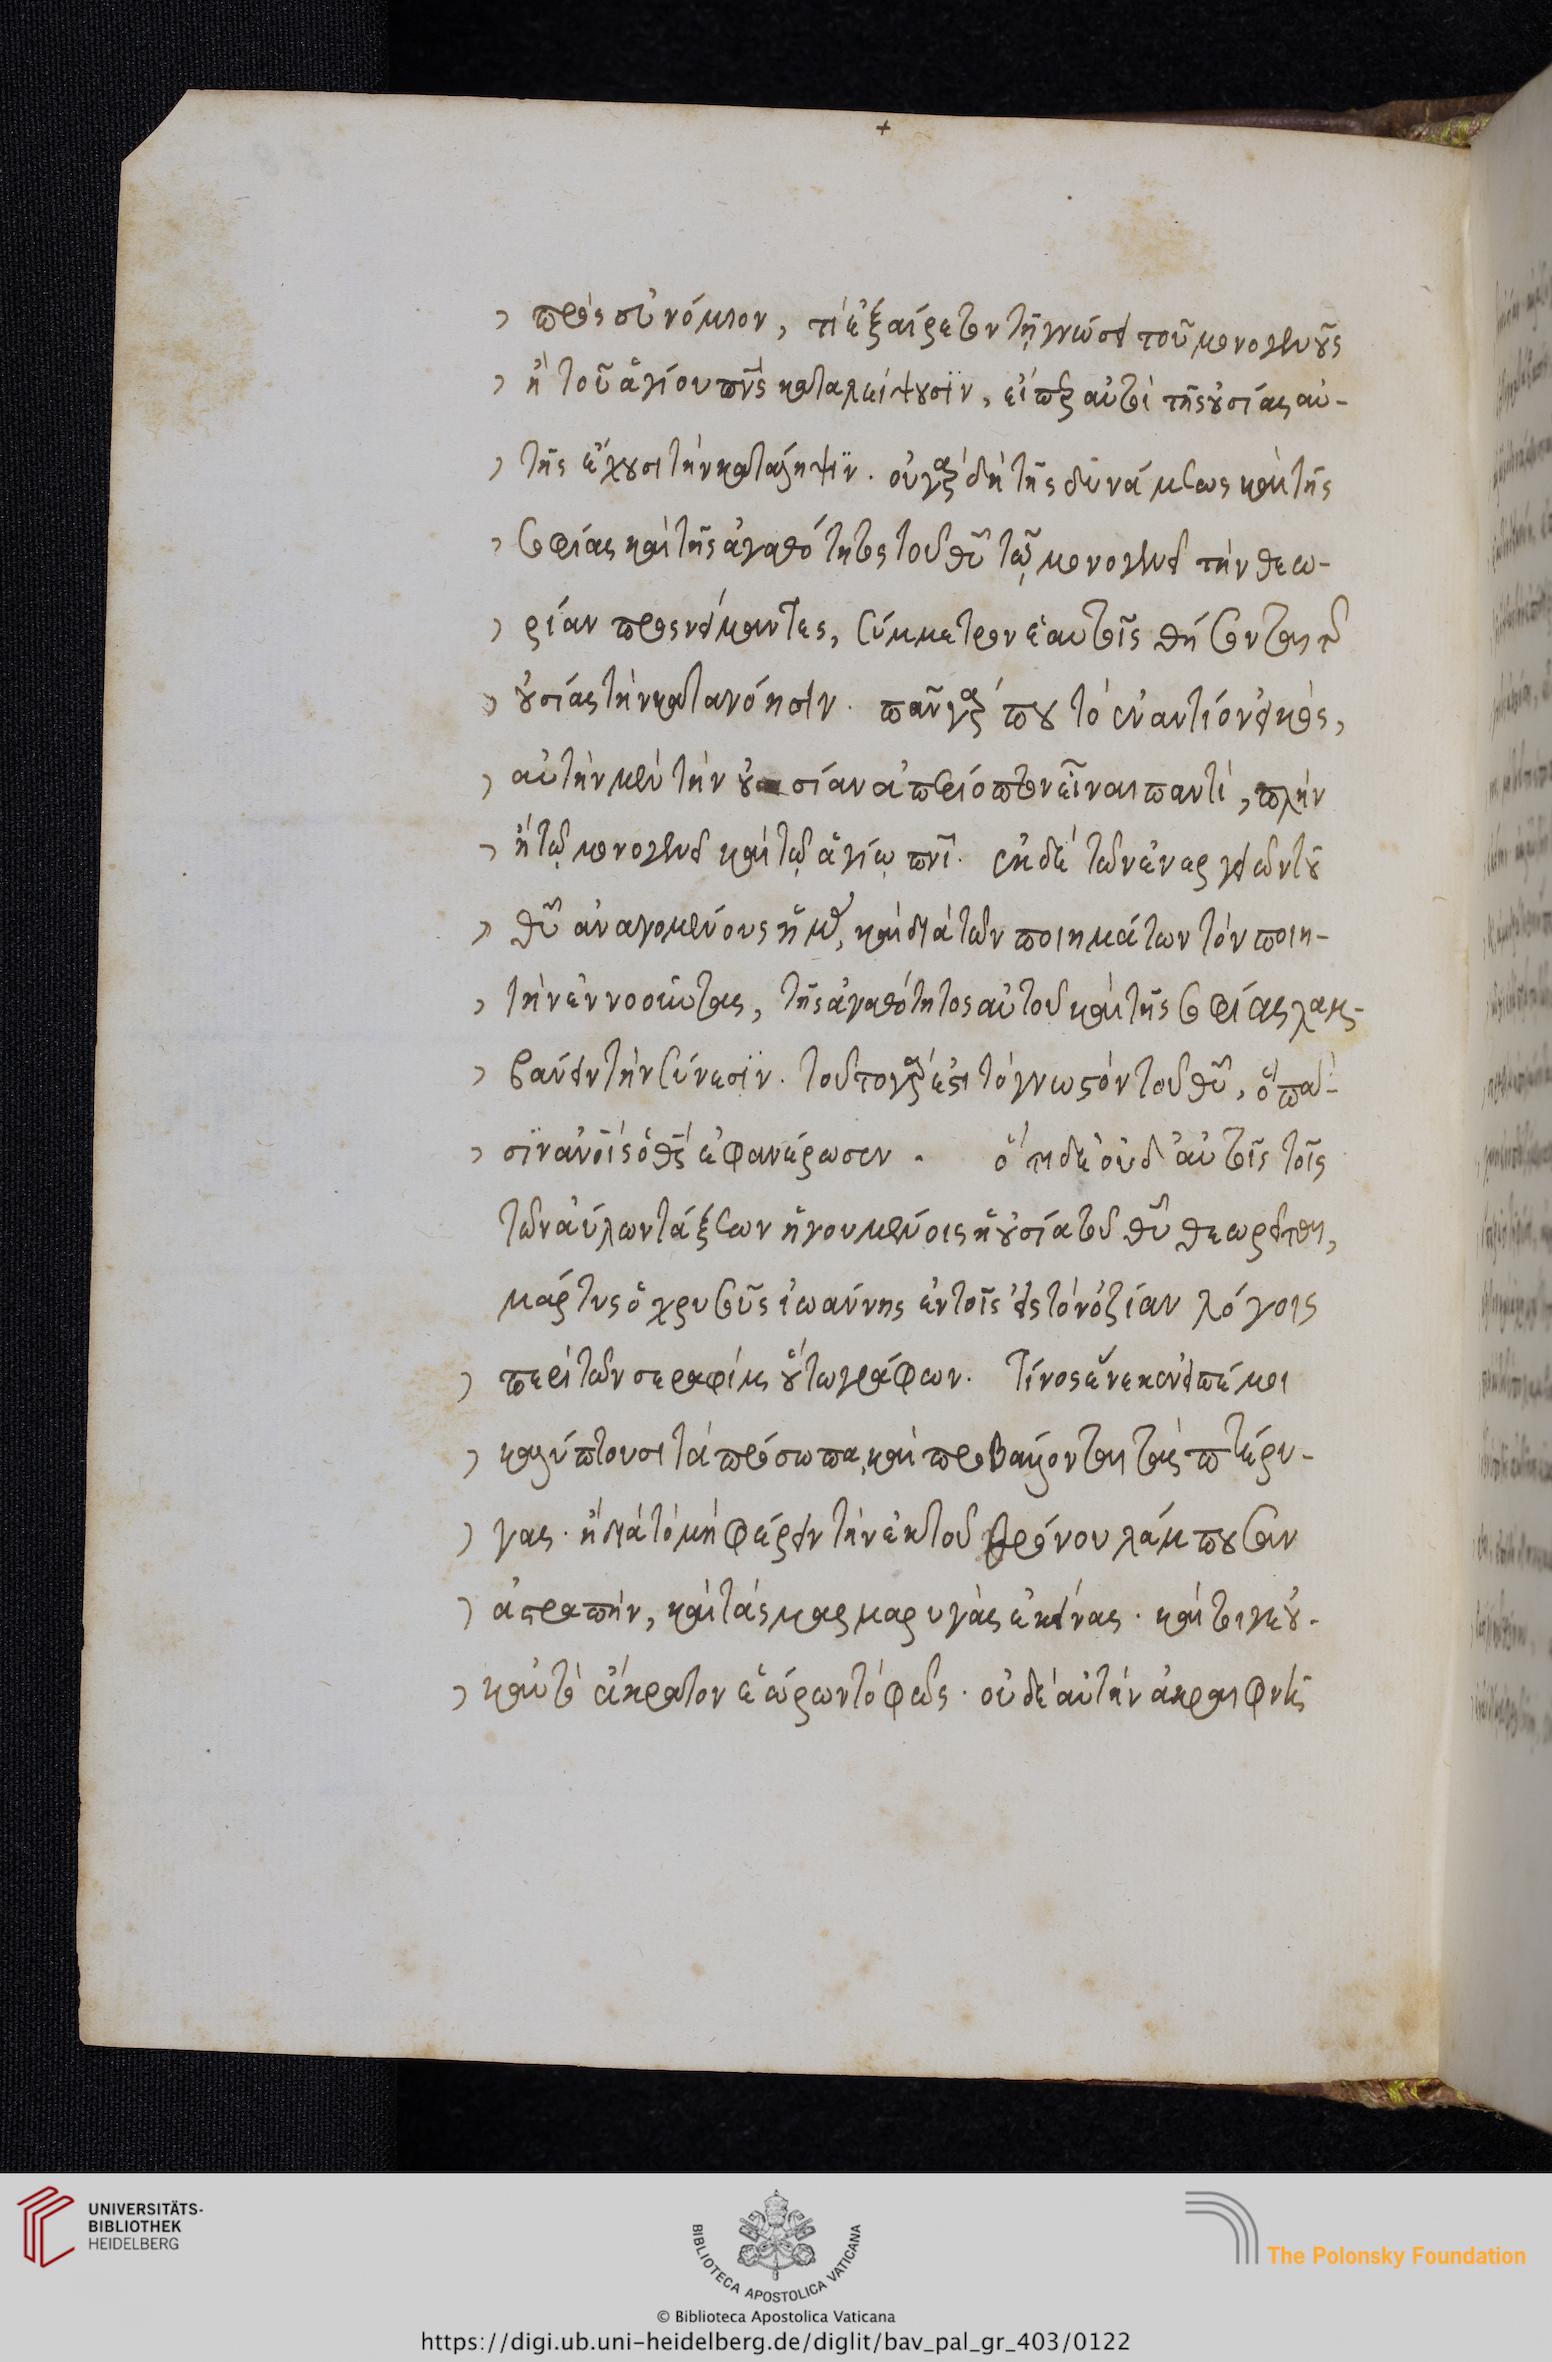 +
πρὸς εὐνόμιον, τί ἐξαίρετον τῇ γνώσει τοῦ μονογενοῦς
ἢ τοῦ ἁγίου πνς καταλείψουσιν, εἴπερ αὐτοὶ τῆς οὐσίας αὐ-
τῆς ἔχουσι τὴν κατάληψιν. οὐ γὰρ δὴ τῆς δυνάμεως καὶ τῆς
σοφίας καὶ τῆς ἀγαθότητος τοῦ θυ τῷ μονογενεῖ τὴν θεω-
ρίαν προσνείμαντες, σύμμετρον ἑαυτοῖς θήσονται τῆς
οὐσίας τὴν κατανόησιν. πᾶν γάρ που τὸ ἐναντίον εἰκὸς,
αὐτὴν μὲν τὴν οὐσίαν ἀπερίοπτον εἶναι παντὶ, πλὴν
ἢ τῷ μονογενεῖ καὶ τῷ ἁγίῳ πνι. ἐκ δὲ τῶν ἐνεργειῶν τοῦ
θυ ἀναγομένους ἡμᾶς, καὶ διὰ τῶν ποιημάτων τὸν ποιη-
τὴν ἐννοοῦντας, τῆς ἀγαθότητος αὐτοῦ καὶ τῆς σοφίας λαμ-
βάνειν τὴν σύνεσιν. τοῦτο γάρ ἐστι τὸ γνωστὸν τοῦ θυ, ὃ πᾶ-
σιν ἀνοις ὁ θς ἐφανέρωσεν. ὅτι δὲ οὐδ' αὐτοῖς τοῖς
τῶν ἀΰλων τάξεων ἡγουμένοις ἡ οὐσία τοῦ θυ θεωρεῖται,
μάρτυς ὁ χρυσοῦς ἰωάννης ἐν τοῖς εἰς τὸν ὀζίαν λόγοις
περὶ τῶν σεραφὶμ οὕτω γράφων. Τίνος ἕνεκεν εἰπέ μοι
καλύπτουσι τὰ πρόσωπα, καὶ προβάλλονται τὰς πτέρυ-
γας. ἢ διὰ τὸ μὴ φέρειν τὴν ἐκ τοῦ θρόνου λάμπουσαν
ἀστραπὴν, καὶ τὰς μαρμαρυγὰς ἐκείνας. καίτοιγε οὐ-
κ αὐτὸ ἄκρατον ἑώρων τὸ φῶς. οὐδὲ αὐτὴν ἀκραιφνῆ
UNIVERSITÄTS-
BIBLIOTHEK
HEIDELBERG
BIBLIOTECA APOSTOLICA VATICANA
© Biblioteca Apostolica Vaticana
The Polonsky Foundation
https://digi.ub.uni-heidelberg.de/diglit/bav_pal_gr_403/0122